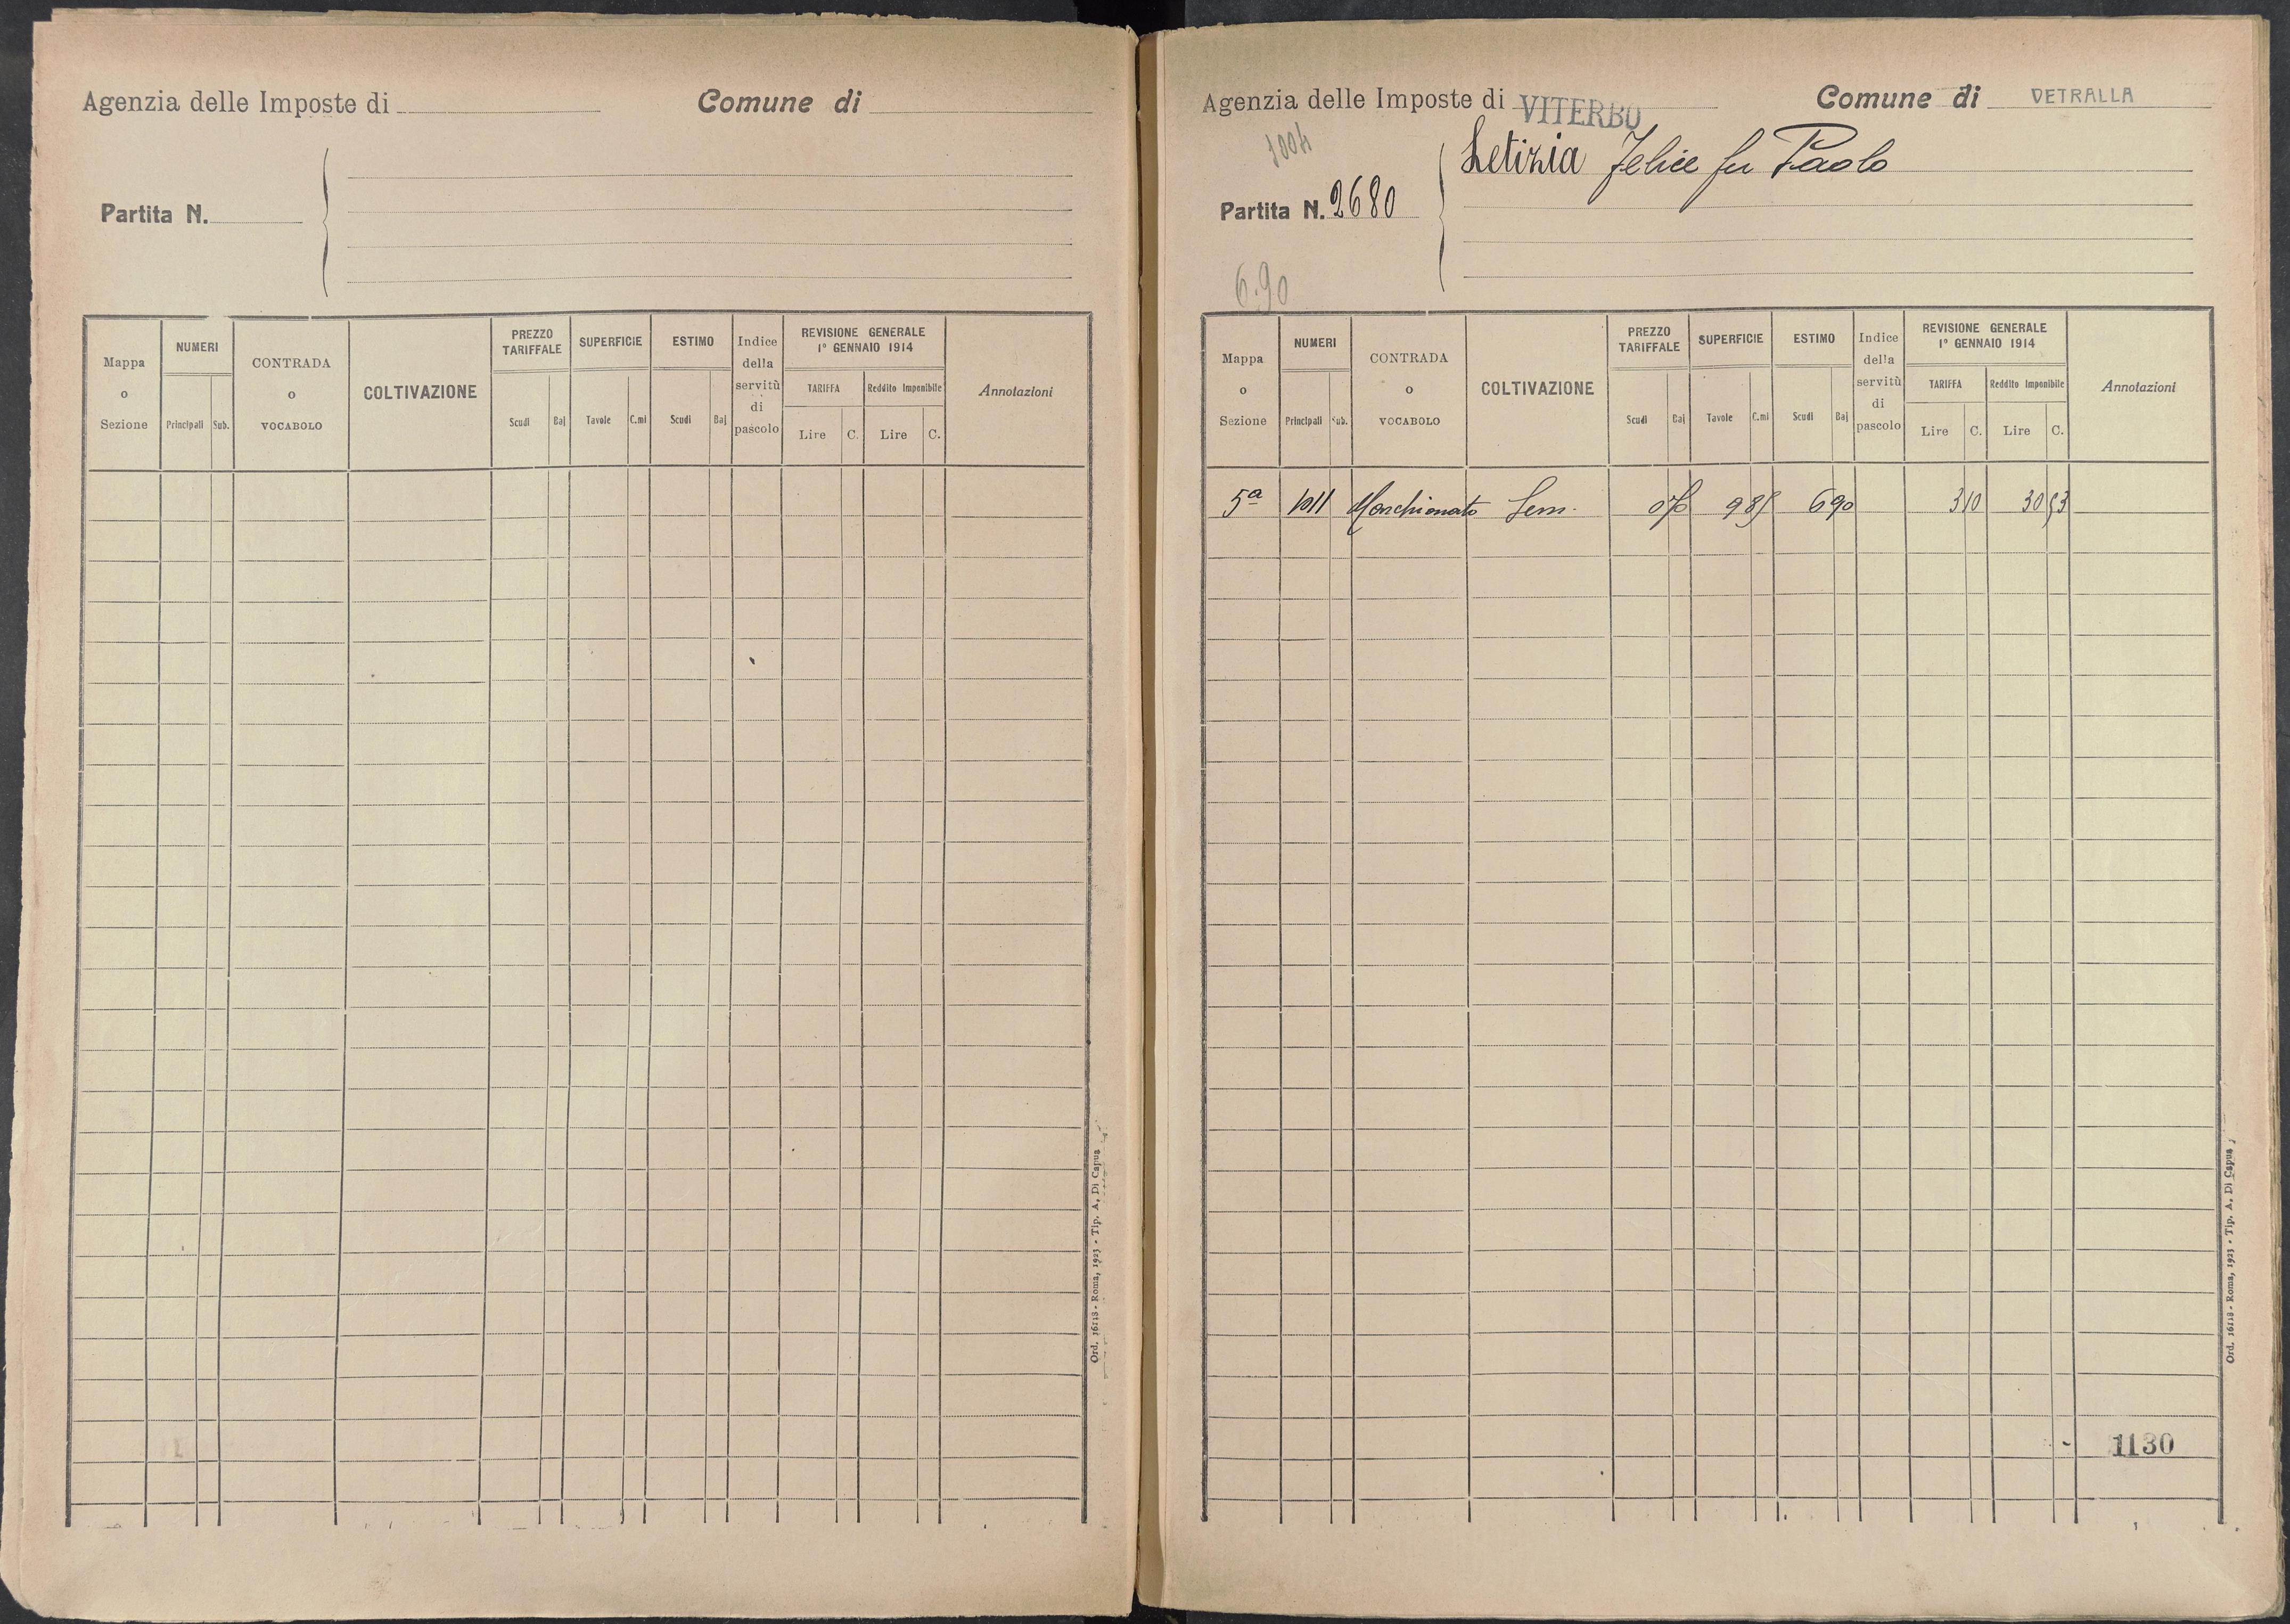 Agenzia delle Imposte di
Comune di
Partita N.
Mappa o Sezione
NUMERI
Principali
Sub.
CONTRADA o VOCABOLO
COLTIVAZIONE
PREZZO TARIFFALE
Scudi
Baj
SUPERFICIE
Tavole
C.mi
ESTIMO
Scudi
Baj
Indice della servitù di pascolo
REVISIONE GENERALE
1° GENNAIO 1914
TARIFFA
Lire
C.
Reddito Imponibile
Lire
C.
Annotazioni
Ord. 16118 - Roma, 1923 - Tip. A. Di Capua
Agenzia delle Imposte di VITERBO
Comune di VETRALLA
1004
Letizia Felice fu Paolo
Partita N. 2680
6.90
Mappa o Sezione
NUMERI
Principali
Sub.
CONTRADA o VOCABOLO
COLTIVAZIONE
PREZZO TARIFFALE
Scudi
Baj
SUPERFICIE
Tavole
C.mi
ESTIMO
Scudi
Baj
Indice della servitù di pascolo
REVISIONE GENERALE
1° GENNAIO 1914
TARIFFA
Lire
C.
Reddito Imponibile
Lire
C.
Annotazioni
5a 1011 Marchionato Sem. 9 85 6 90 3 10 30 53
1130
Ord. 16118 - Roma, 1923 - Tip. A. Di Capua